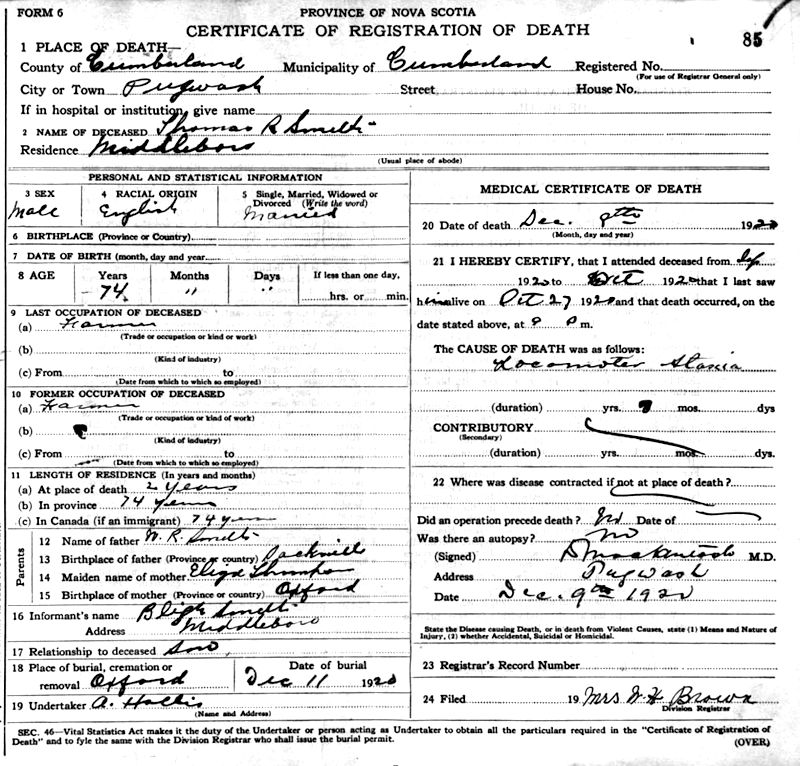 FORM 6
PROVINCE OF NOVA SCOTIA
CERTIFICATE OF REGISTRATION OF DEATH
85
1 PLACE OF DEATH—
County of Cumberland Municipality of Cumberland Registered No.
(For use of Registrar General only)
City or Town Pugwash Street House No.
If in hospital or institution, give name
2 NAME OF DECEASED Thomas R Smith
Residence Middleboro
(Usual place of abode)
PERSONAL AND STATISTICAL INFORMATION
3 SEX
Male
4 RACIAL ORIGIN
English
5 Single, Married, Widowed or
Divorced (Write the word)
Married
6 BIRTHPLACE (Province or Country)
7 DATE OF BIRTH (month, day and year
8 AGE Years Months Days If less than one day,
74 " " hrs. or min.
9 LAST OCCUPATION OF DECEASED
(a) Farmer
(Trade or occupation or kind or work)
(b)
(Kind of industry)
(c) From to
(Date from which to which so employed)
10 FORMER OCCUPATION OF DECEASED
(a) Farmer
(Trade or occupation or kind of work)
(b)
(Kind of industry)
(c) From to
(Date from which to which so employed)
11 LENGTH OF RESIDENCE (In years and months)
(a) At place of death 2 years
(b) In province 74 years
(c) In Canada (if an immigrant) 74 years
Parents
12 Name of father W. R. Smith
13 Birthplace of father (Province or country) Sackville
14 Maiden name of mother Eliza
15 Birthplace of mother (Province or country) Oxford
16 Informant's name Smith
Address Middleboro
17 Relationship to deceased Son
18 Place of burial, cremation or
removal Oxford
Date of burial
Dec 11 1920
19 Undertaker A. Hollis
(Name and Address)
MEDICAL CERTIFICATE OF DEATH
20 Date of death Dec. 9th 1920
(Month, day and year)
21 I HEREBY CERTIFY, that I attended deceased from
1920 to Oct 1920 that I last saw
him alive on Oct 27 1920 and that death occurred, on the
date stated above, at 9 P m.
The CAUSE OF DEATH was as follows:
Locomoter Ataxia
(duration) yrs. mos. dys
CONTRIBUTORY
(Secondary)
(duration) yrs. mos. dys.
22 Where was disease contracted if not at place of death?
Did an operation precede death? No Date of
Was there an autopsy? No
(Signed) D Mackintosh M.D.
Address Pugwash
Date Dec. 9th 1920
State the Disease causing Death, or in death from Violent Causes, state (1) Means and Nature of
Injury, (2) whether Accidental, Suicidal or Homicidal.
23 Registrar's Record Number
24 Filed 19 Mrs W H Brown
Division Registrar
SEC. 46—Vital Statistics Act makes it the duty of the Undertaker or person acting as Undertaker to obtain all the particulars required in the "Certificate of Registration of
Death" and to fyle the same with the Division Registrar who shall issue the burial permit.
(OVER)